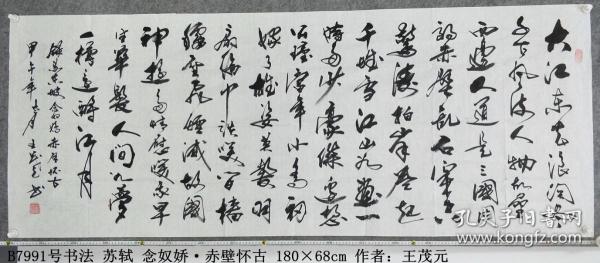 大江东去浪淘尽
千古风流人物故垒
西邊人道是三國周
郎赤壁乱石穿空
驚涛拍岸卷起
千堆雪江山如画一
時多少豪傑遥想
公瑾當年小乔初
嫁了雄姿英發羽
扇纶巾谈笑间樯
橹灰飞煙滅故國
神遊多情應笑我早
生華髮人间如夢
一樽還酹江月
錄苏东坡念奴娇赤壁怀古
甲午年 月王茂元书
孔夫子旧书网
B7991号书法 苏轼 念奴娇·赤壁怀古 180×68cm 作者：王茂元